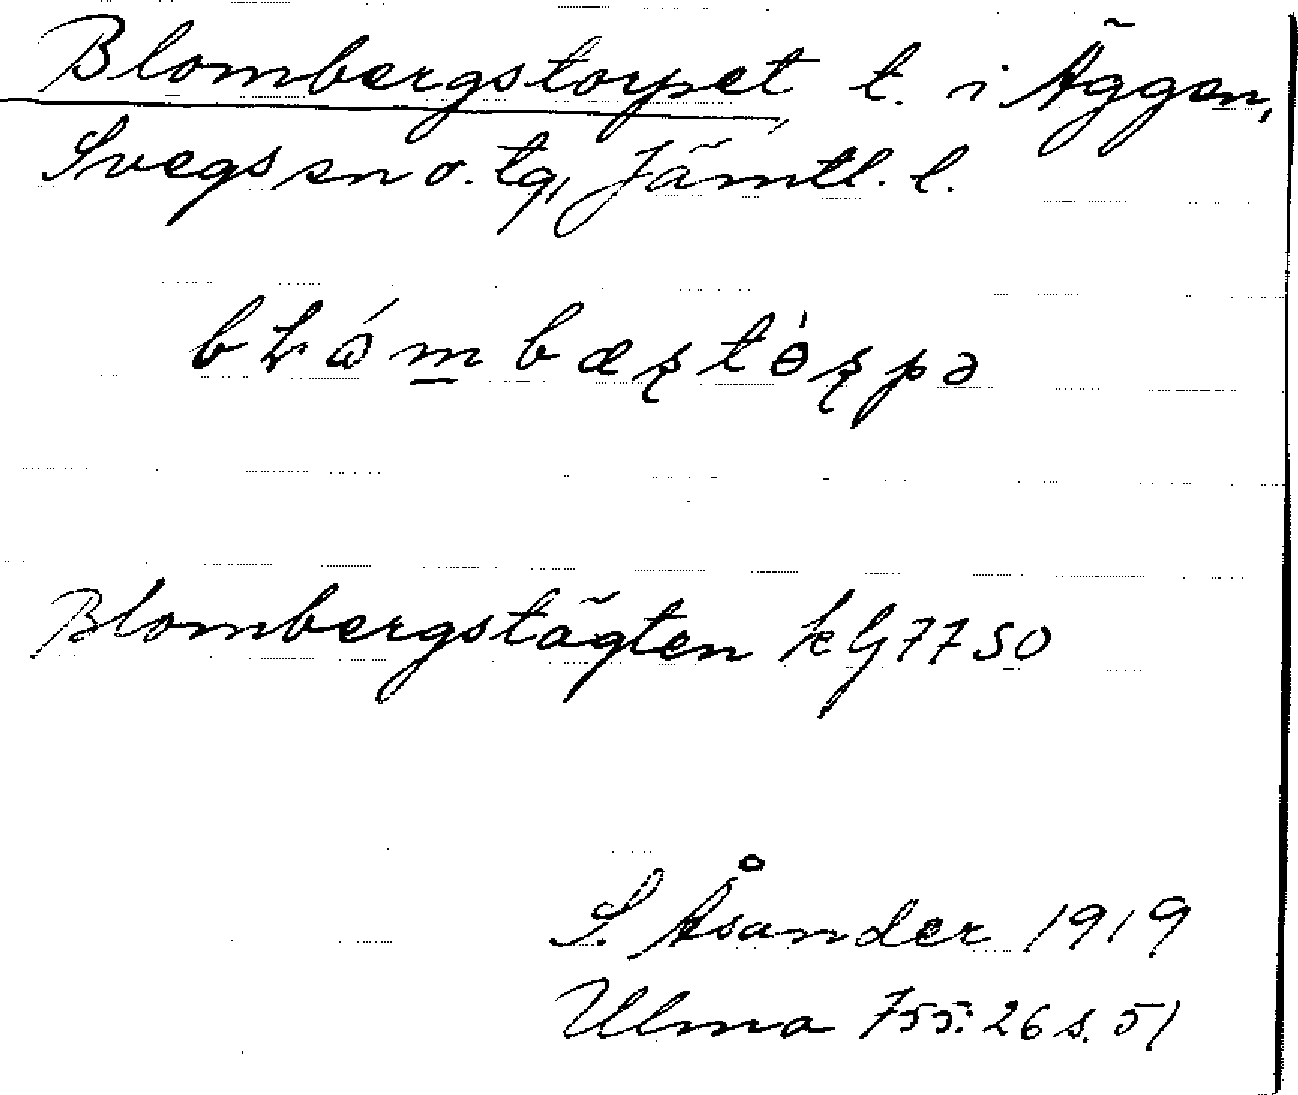 Blombergstorpet, t. i Äggen,
Svegs sn o. tg, Jämtl. l.
Blombergstägten kG7750
S. Åsander 1919
Ulma 755:26 s. 51